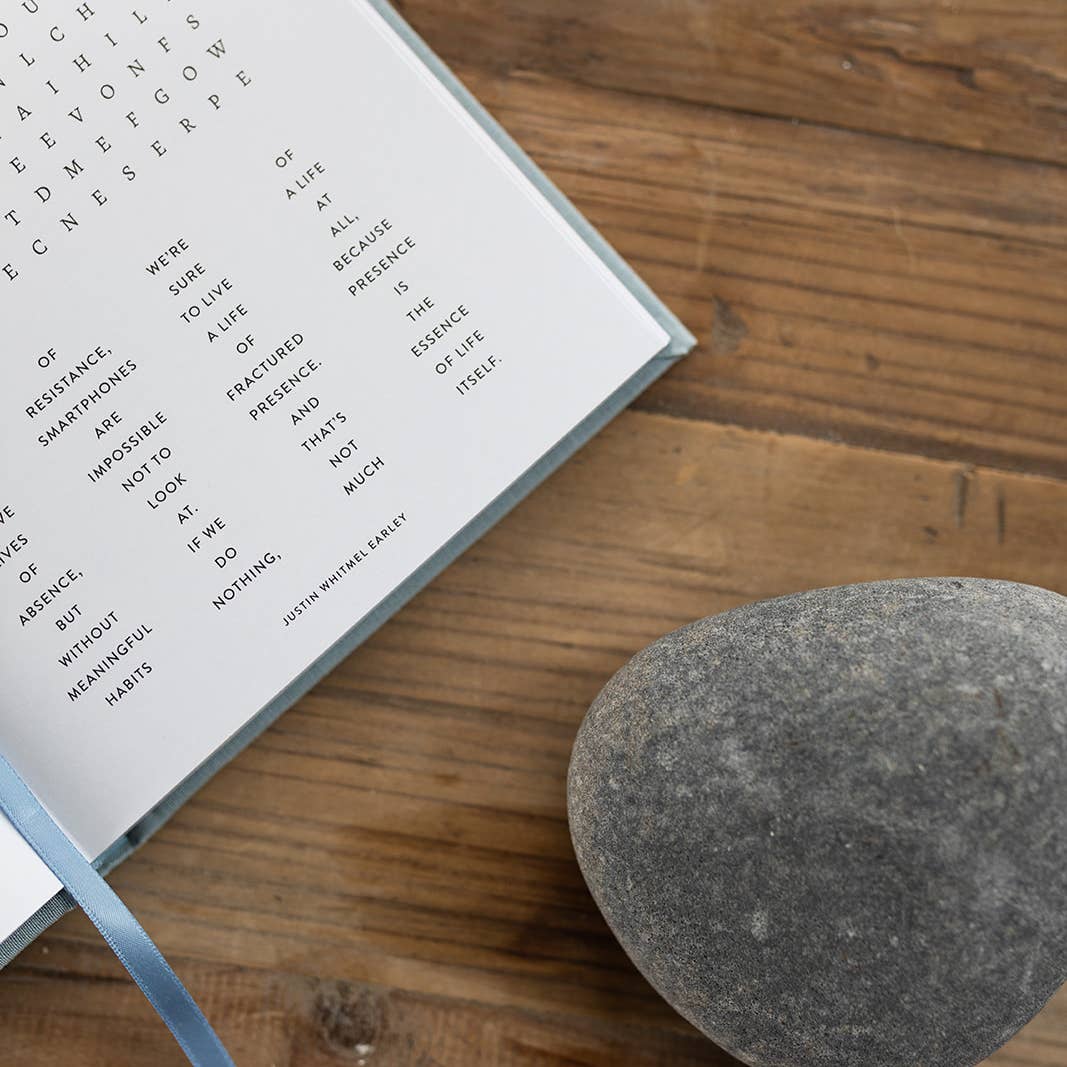 O U
N L C H
A I H I L
E E V O N F S
T D M E F G O W
E C N E S E R P E
OF
ABSENCE,
BUT
WITHOUT
MEANINGFUL
HABITS
OF
RESISTANCE,
SMARTPHONES
ARE
IMPOSSIBLE
NOT TO
LOOK
AT.
IF WE
DO
NOTHING,
WE'RE
SURE
TO LIVE
A LIFE
OF
FRACTURED
PRESENCE.
AND
THAT'S
NOT
MUCH
OF
A LIFE
AT
ALL,
BECAUSE
PRESENCE
IS
THE
ESSENCE
OF LIFE
ITSELF.
JUSTIN WHITMEL EARLEY